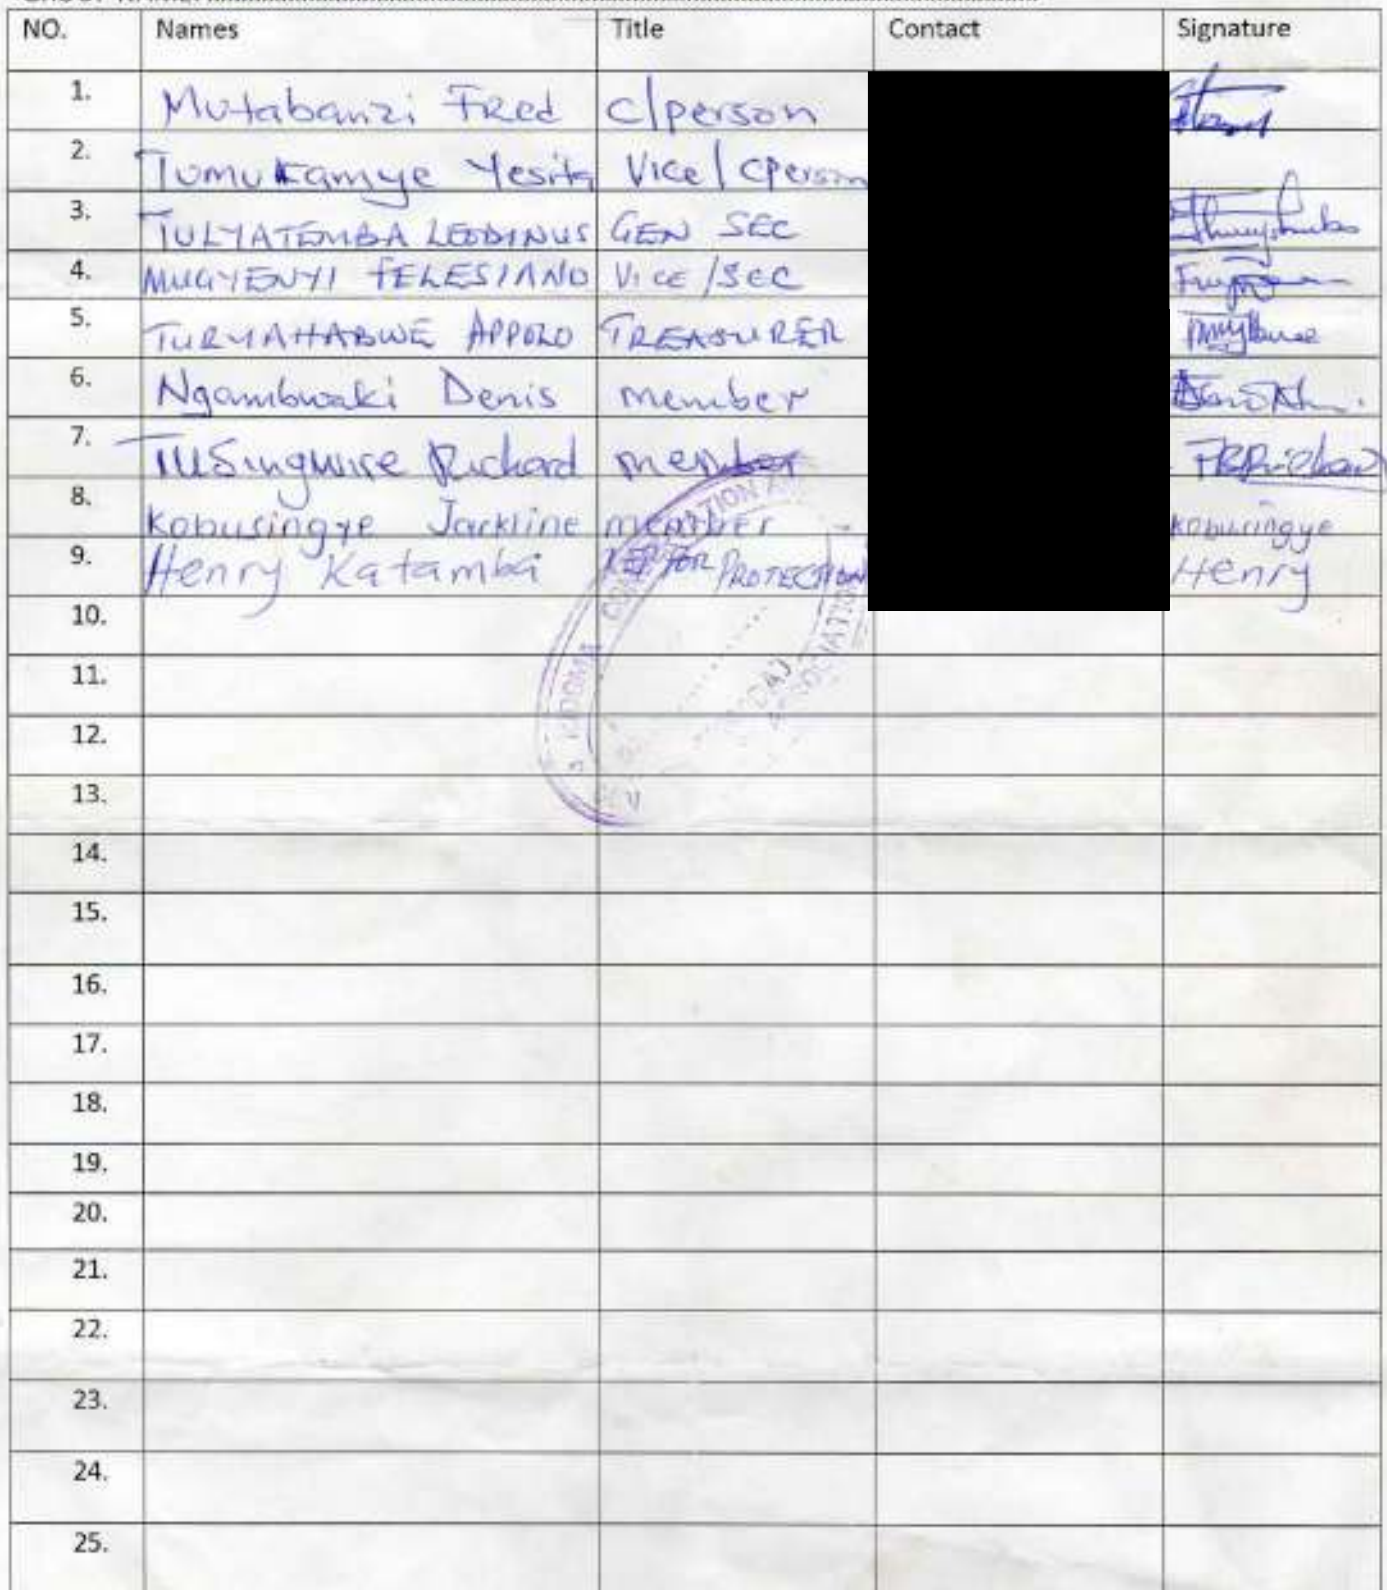 NO. Names Title Contact Signature
1. Mutabanzi Fred c/person
2. Tumukamye Yesita Vice/cperson
3. TULYATEMBA LEODINUS GEN SEC
4. MUGYENYI FELESIANO VICE/SEC
5. TURYAHABWE APPOLO TREASURER
6. Ngambwaki Denis member
7. TUSingwire Richard member
8. Kobusingye Jackline member Kobusingye
9. Henry Katamba REP FOR PROTECTION Henry
10.
11.
12.
13.
14.
15.
16.
17.
18.
19.
20.
21.
22.
23.
24.
25.